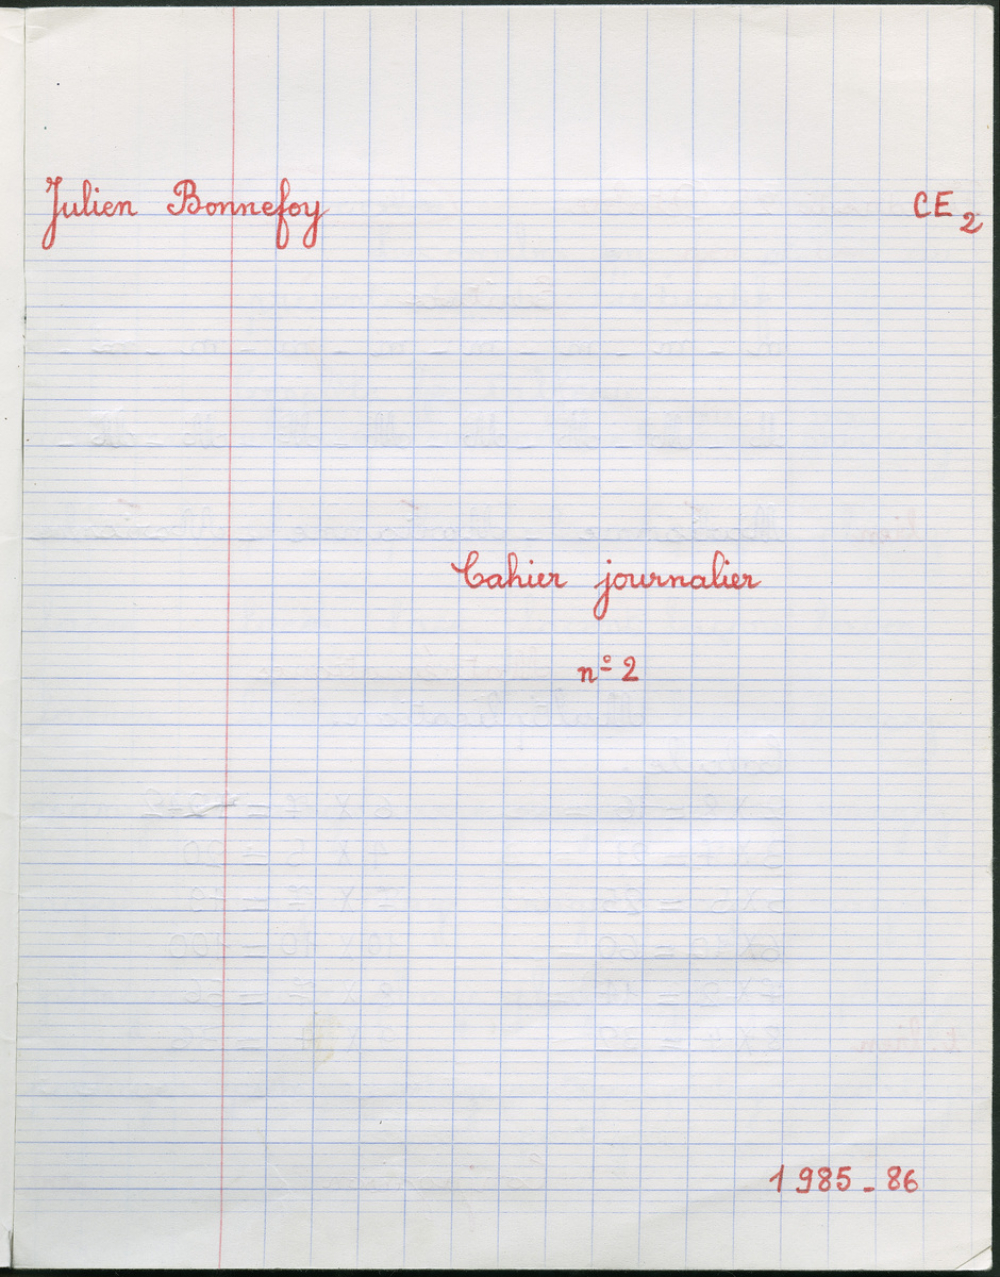 Julien Bonnefoy CE2
Cahier journalier
nº 2
1985-86